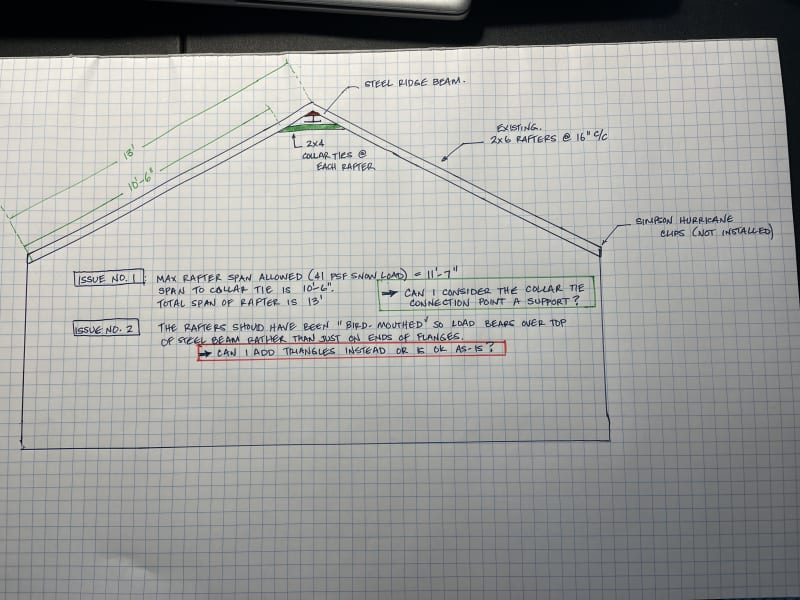 STEEL RIDGE BEAM.
13'
10'-6"
2x4
COLLAR TIES @
EACH RAFTER
EXISTING.
2x6 RAFTERS @ 16" c/c
SIMPSON HURRICANE
CLIPS (NOT INSTALLED)
ISSUE NO. 1 : MAX RAFTER SPAN ALLOWED (41 PSF SNOW LOAD) = 11'-7"
SPAN TO COLLAR TIE IS 10'-6".
TOTAL SPAN OF RAFTER IS 13'
→ CAN I CONSIDER THE COLLAR TIE
CONNECTION POINT A SUPPORT?
ISSUE NO. 2 THE RAFTERS SHOULD HAVE BEEN "BIRD-MOUTHED" SO LOAD BEARS OVER TOP
OF STEEL BEAM RATHER THAN JUST ON ENDS OF FLANGES.
→ CAN I ADD TRIANGLES INSTEAD OR IS OK AS-IS?